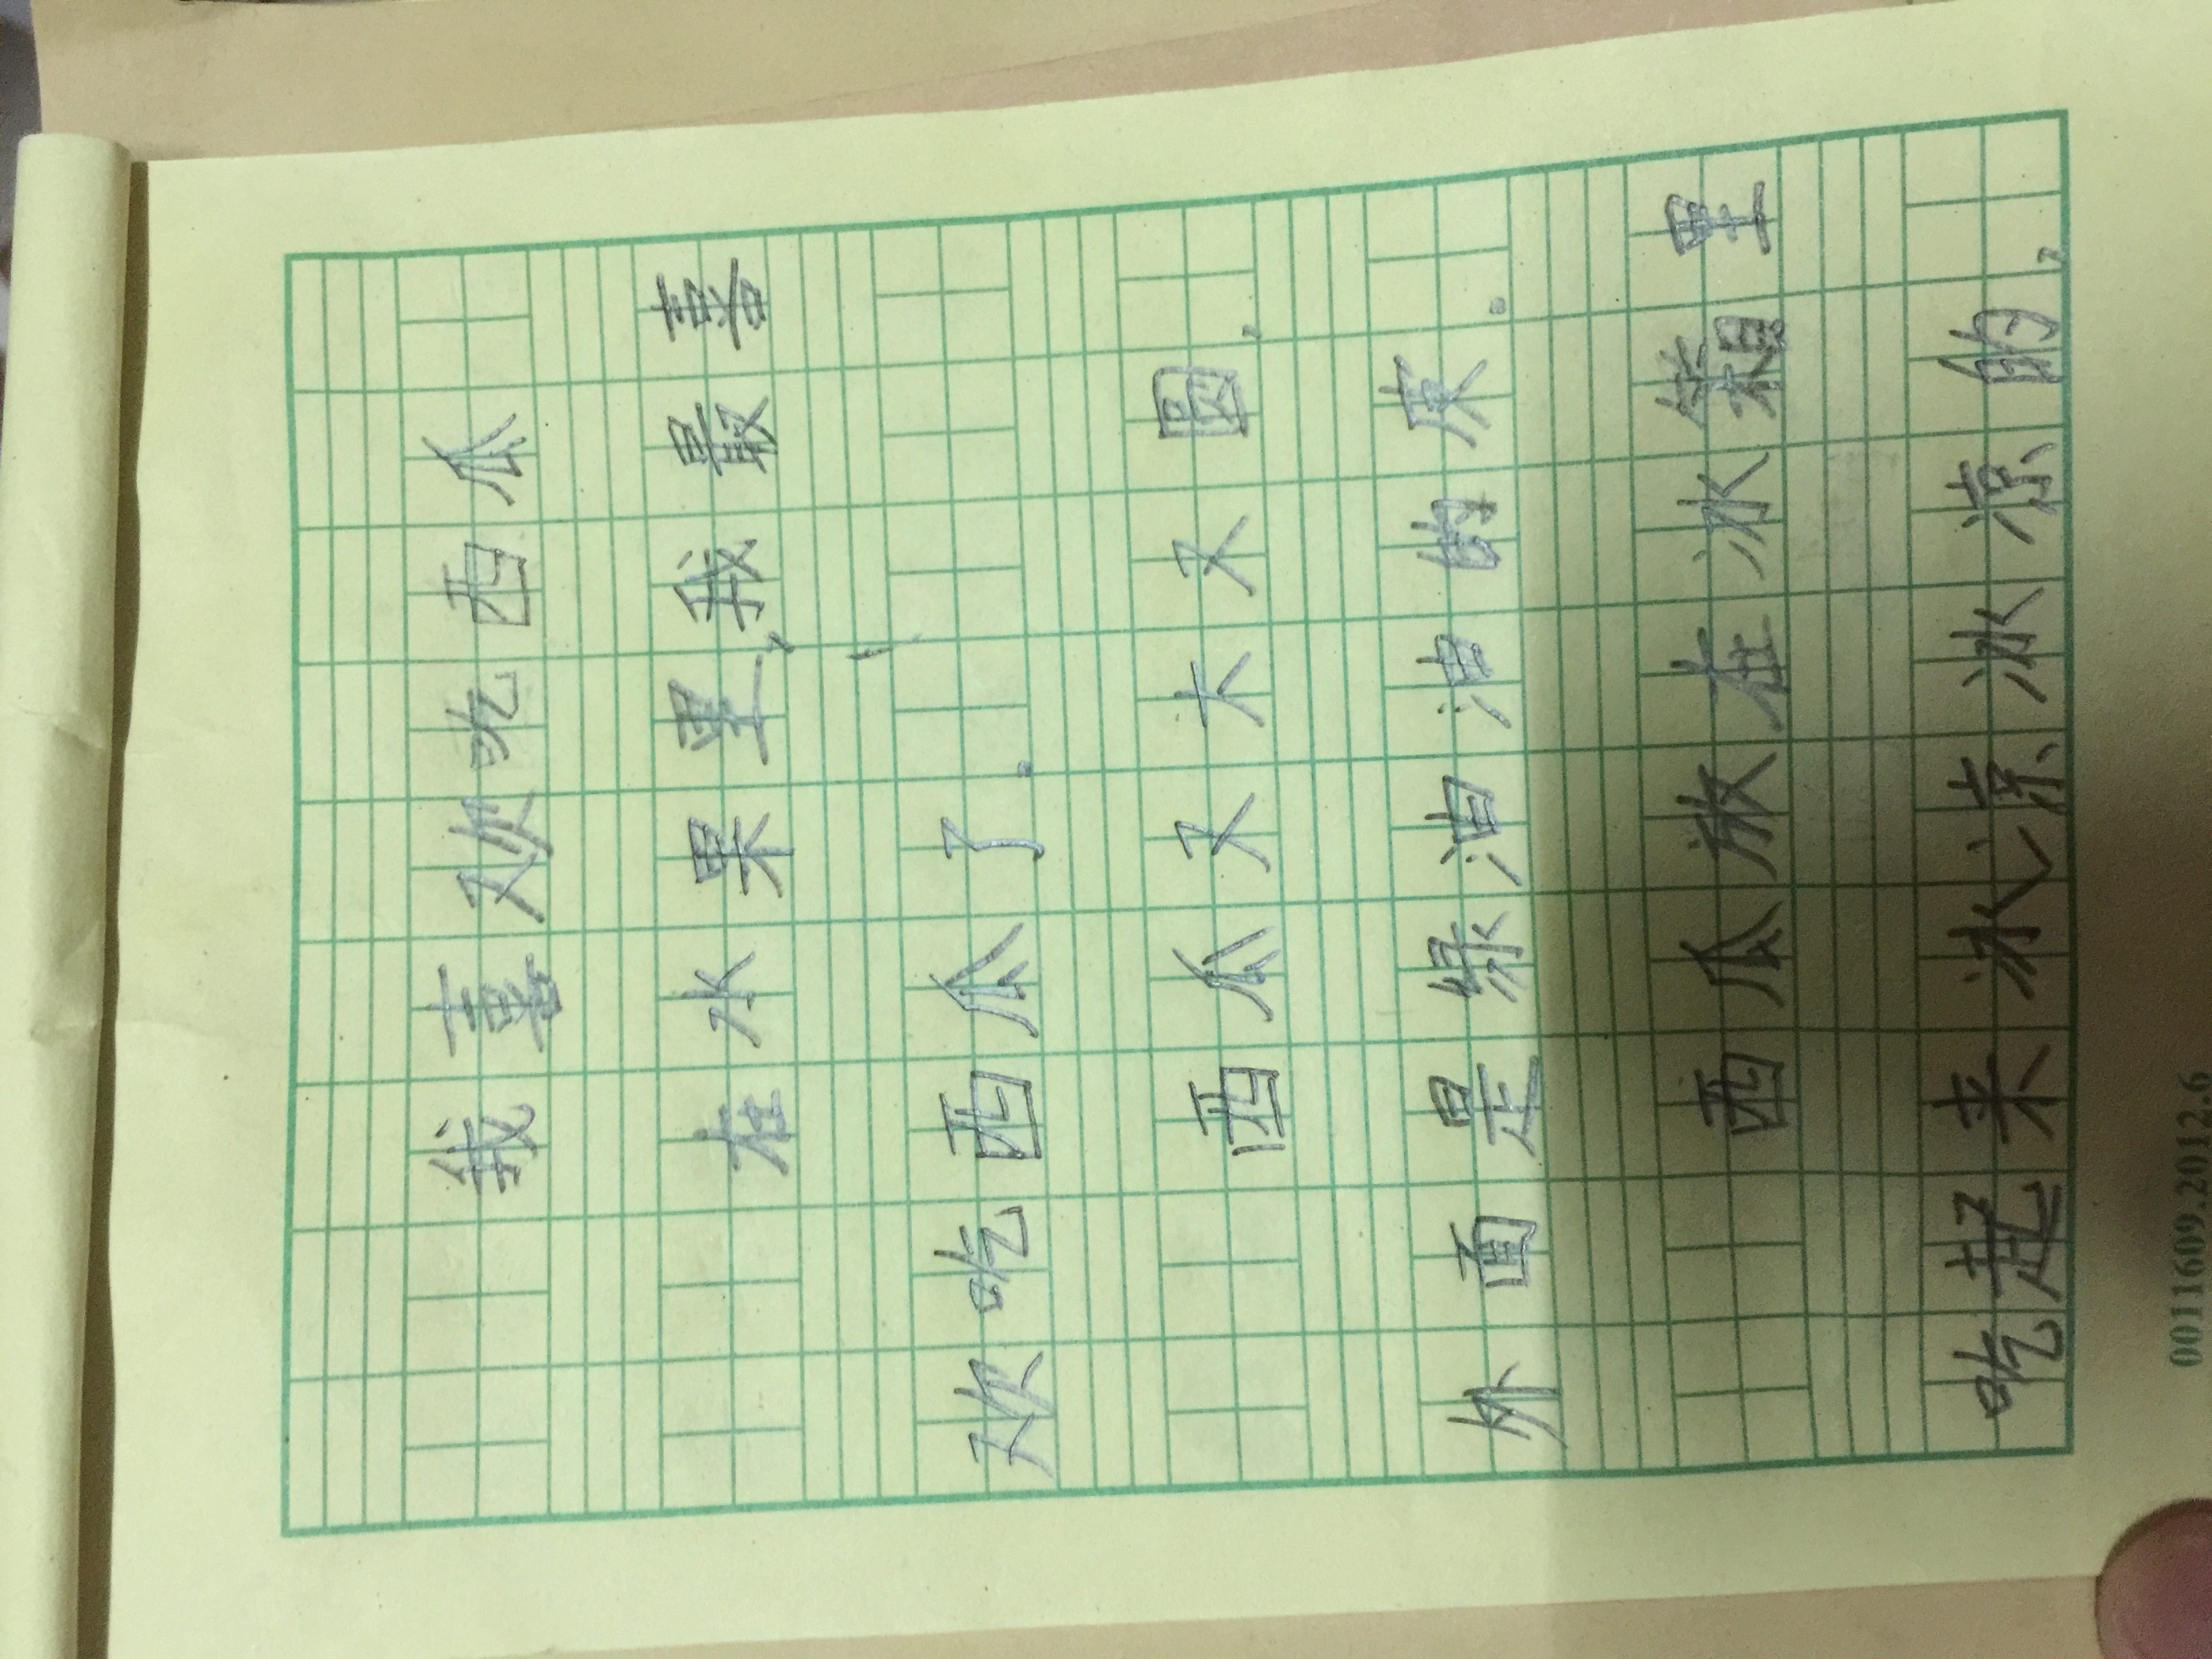 我喜欢吃西瓜
在水果里，我最喜
欢吃西瓜了。
西瓜又大又圆，
外面是绿油油的。
西瓜放在冰箱里
吃起来冰凉冰凉的，
0011609.2012.6